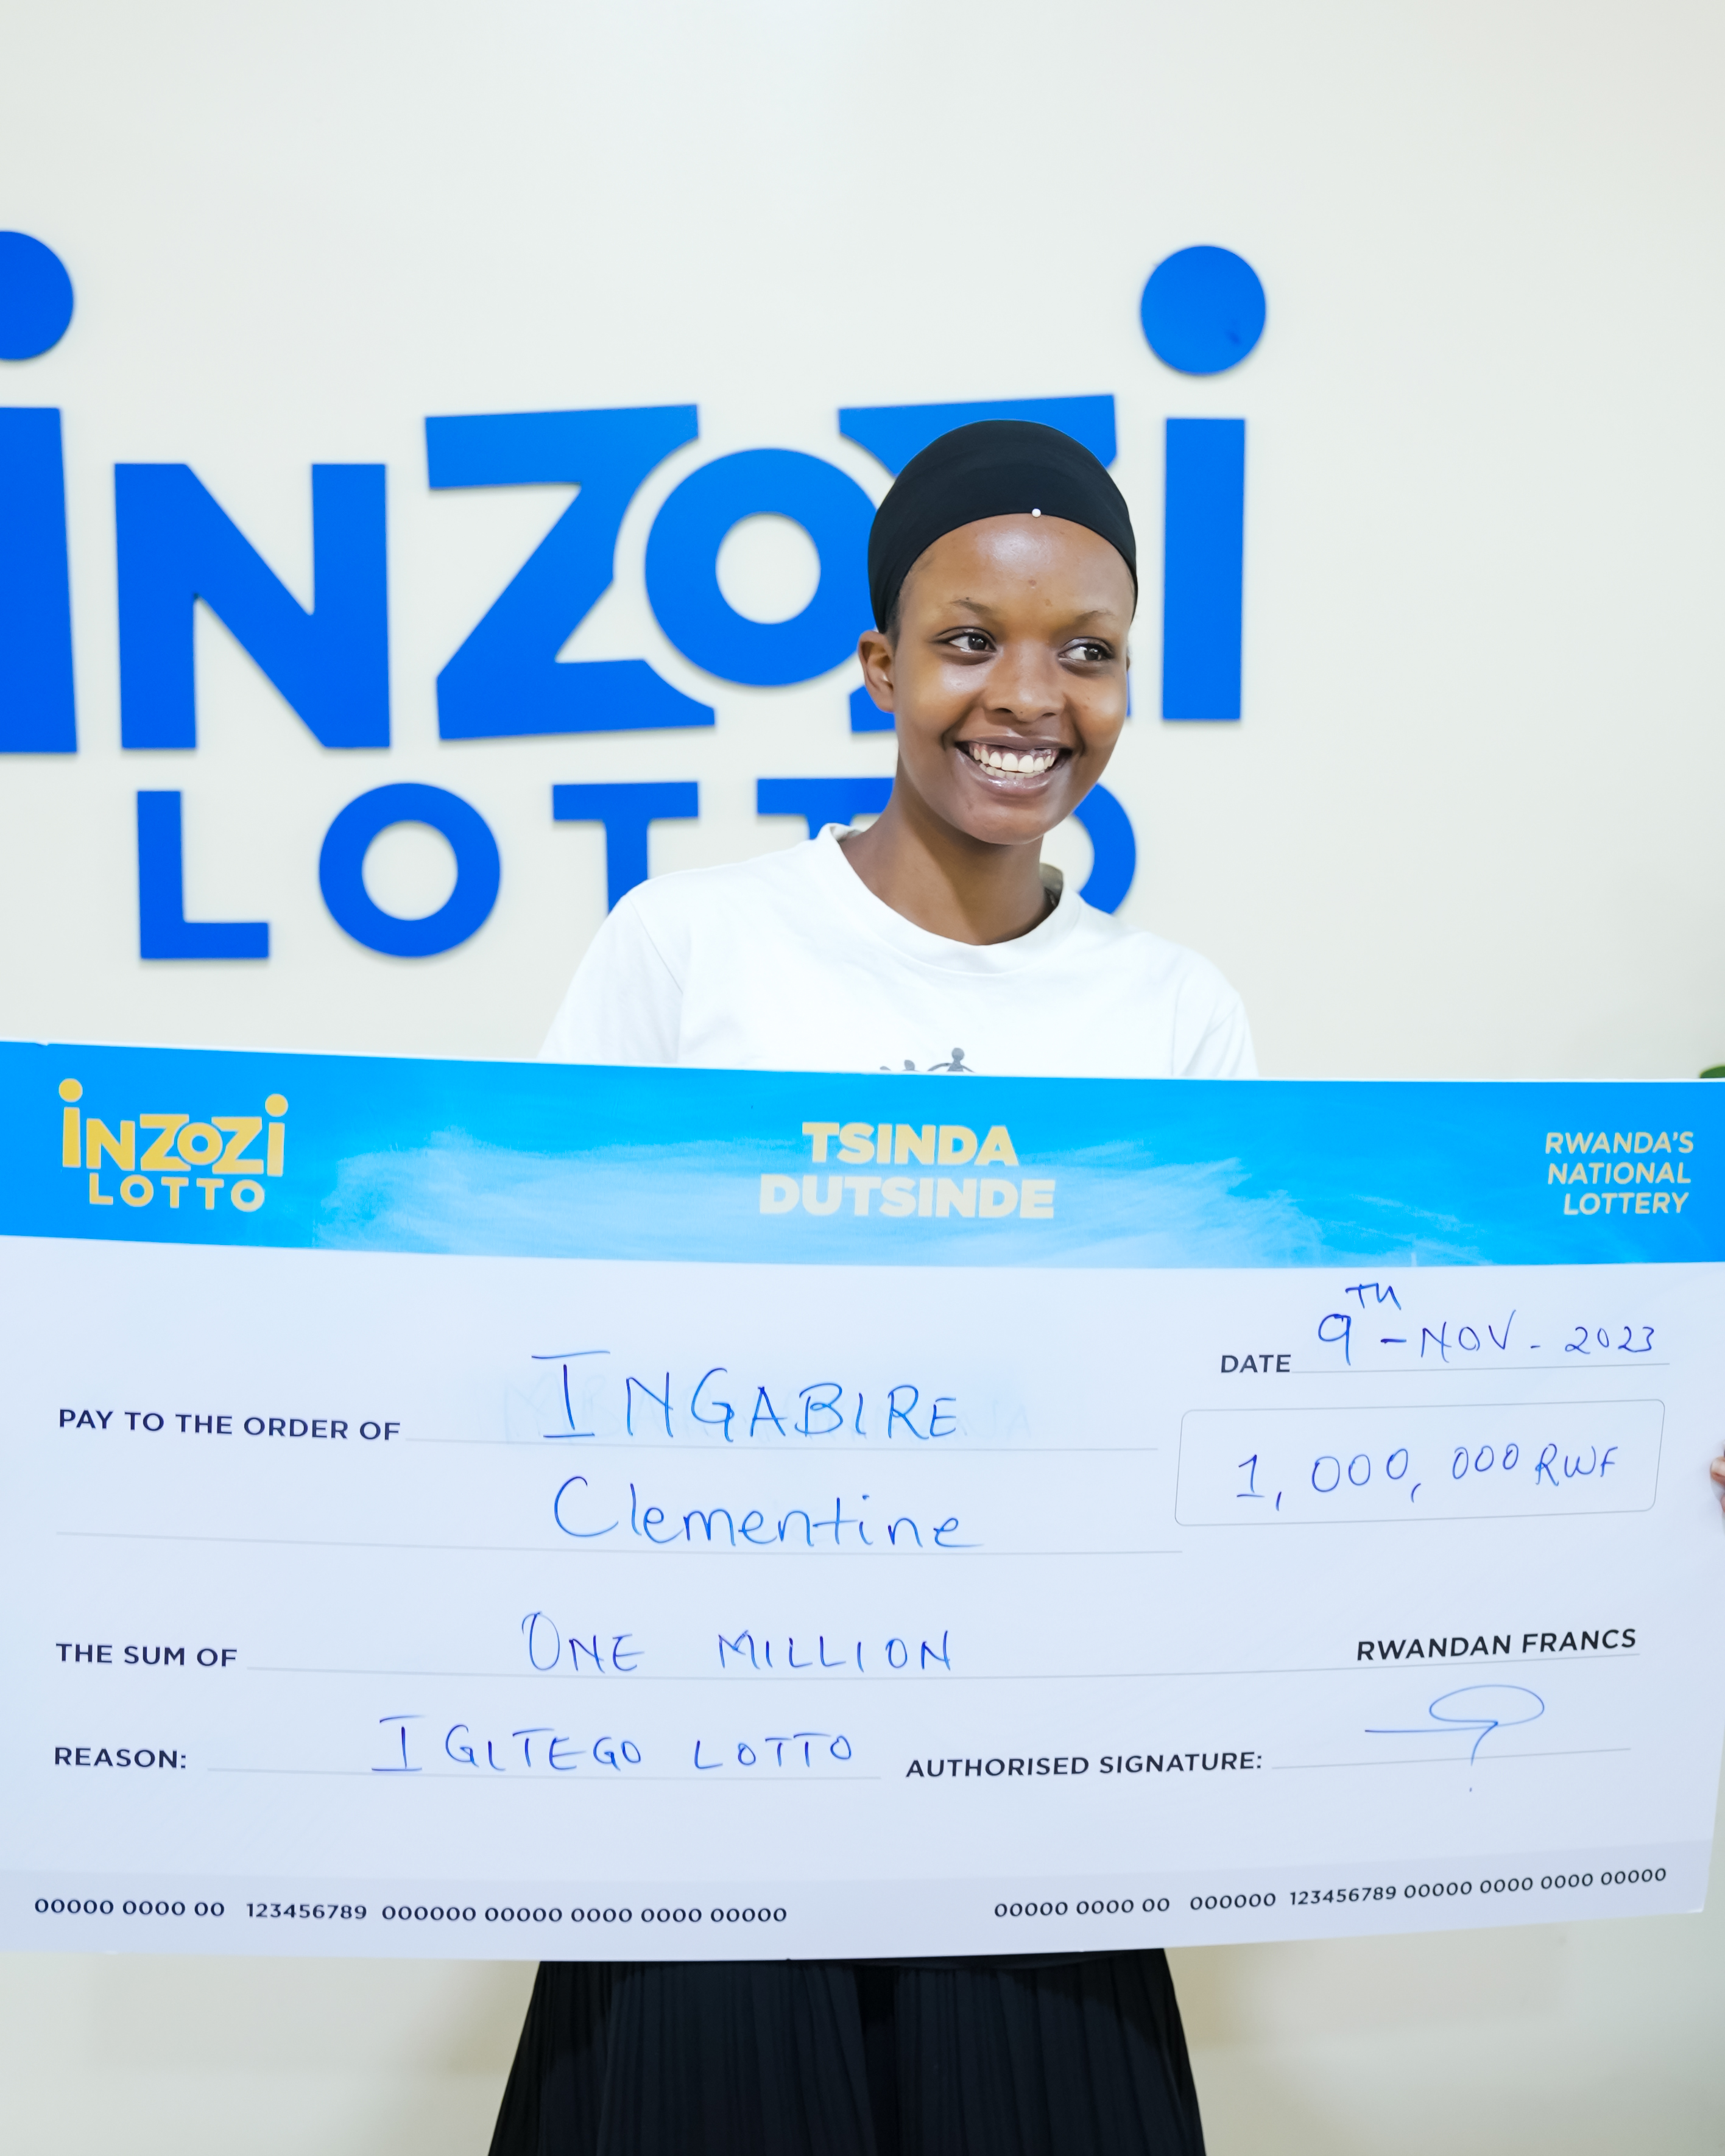 iNZOZi
LOTTO
iNZOZi
LOTTO
TSINDA
DUTSINDE
RWANDA'S
NATIONAL
LOTTERY
DATE 9TH - NOV - 2023
PAY TO THE ORDER OF INGABIRE
1,000,000 RWF
Clementine
THE SUM OF ONE MILLION RWANDAN FRANCS
REASON: IGITEGO LOTTO AUTHORISED SIGNATURE:
00000 0000 00 123456789 000000 00000 0000 0000 00000 00000 0000 00 000000 123456789 00000 0000 0000 00000